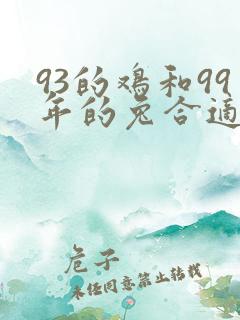 93的鸡和99
年的兔合适
危子
未任同意禁止转载